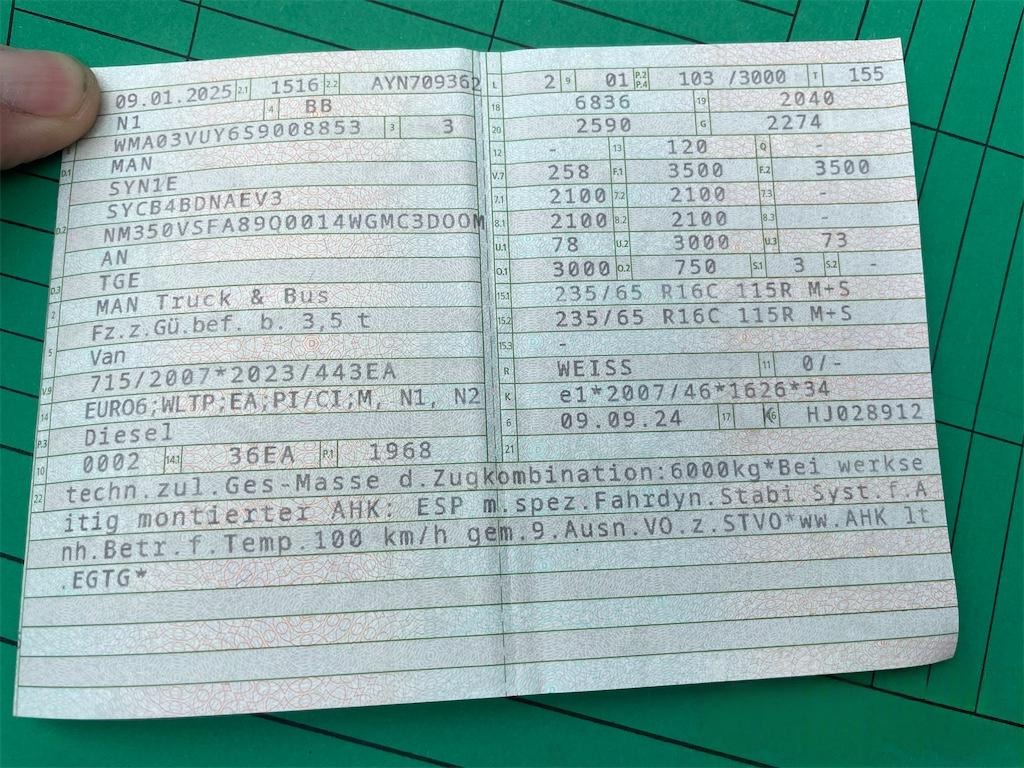 09.01.2025 2.1 1516 2.2 AYN709362
N1 4 BB
WMA03VUY6S9008853 3 3
D.1 MAN
SYN1E
SYCB4BDNAEV3
D.2 NM350VSFA89Q0014WGMC3DOOM
AN
D.3 TGE
2 MAN Truck & Bus
Fz.z.Gü.bef. b. 3,5 t
5 Van
V.9 715/2007*2023/443EA
14 EURO6;WLTP;EA;PI/CI;M, N1, N2
P.3 Diesel
10 0002 14.1 36EA P.1 1968
L 2 9 01 P.2 P.4 103 /3000 T 155
18 6836 19 2040
20 2590 G 2274
12 - 13 120 Q -
V.7 258 F.1 3500 F.2 3500
7.1 2100 7.2 2100 7.3 -
8.1 2100 8.2 2100 8.3 -
U.1 78 U.2 3000 U.3 73
O.1 3000 O.2 750 S.1 3 S.2 -
15.1 235/65 R16C 115R M+S
15.2 235/65 R16C 115R M+S
15.3 -
R WEISS 11 0/-
K e1*2007/46*1626*34
6 09.09.24 17 K 16 HJ028912
21
22 techn.zul.Ges-Masse d.Zugkombination:6000kg*Bei werkse
itig montierter AHK: ESP m.spez.Fahrdyn.Stabi Syst.f.A
nh.Betr.f.Temp.100 km/h gem.9.Ausn.VO.z.STVO*ww.AHK lt
.EGTG*